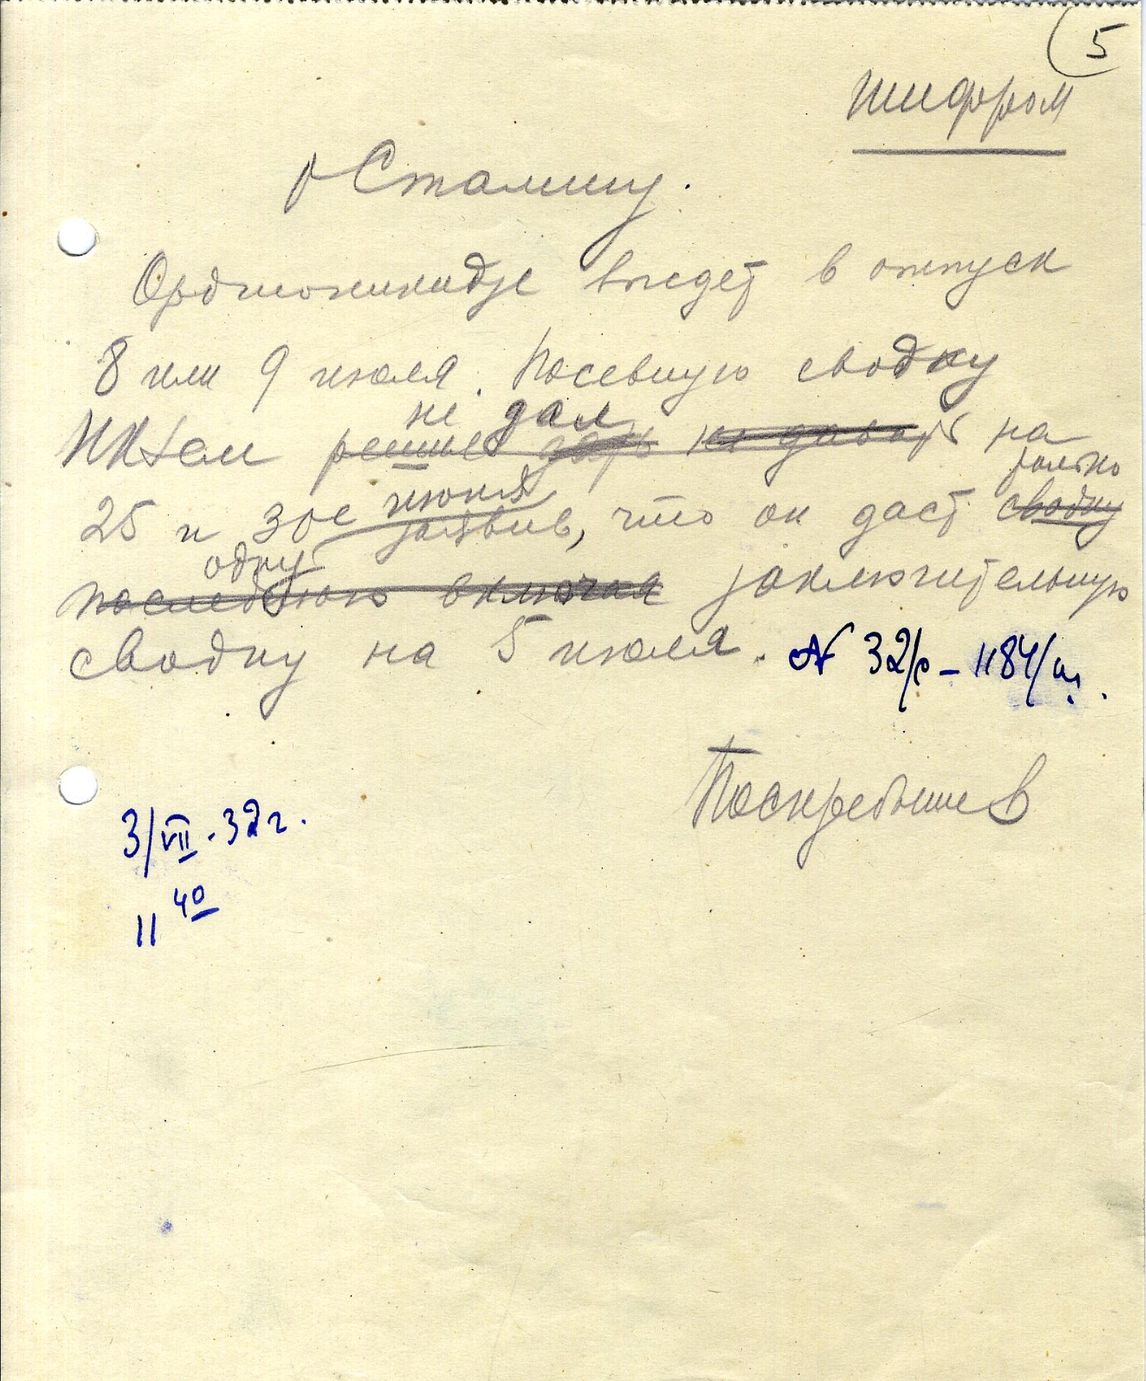 5
шифром
Сталину.
Орджоникидзе выедет в отпуск
8 или 9 июля. Посевную сводку
не дал
НКЗем решил дать не давать на
июня только
25 и 30е заявив, что он даст сводку
одну
последнюю включая заключительную
сводку на 5 июля. № 32/с – 1184/ш.
Поскребышев
3/VII-32г.
11 40